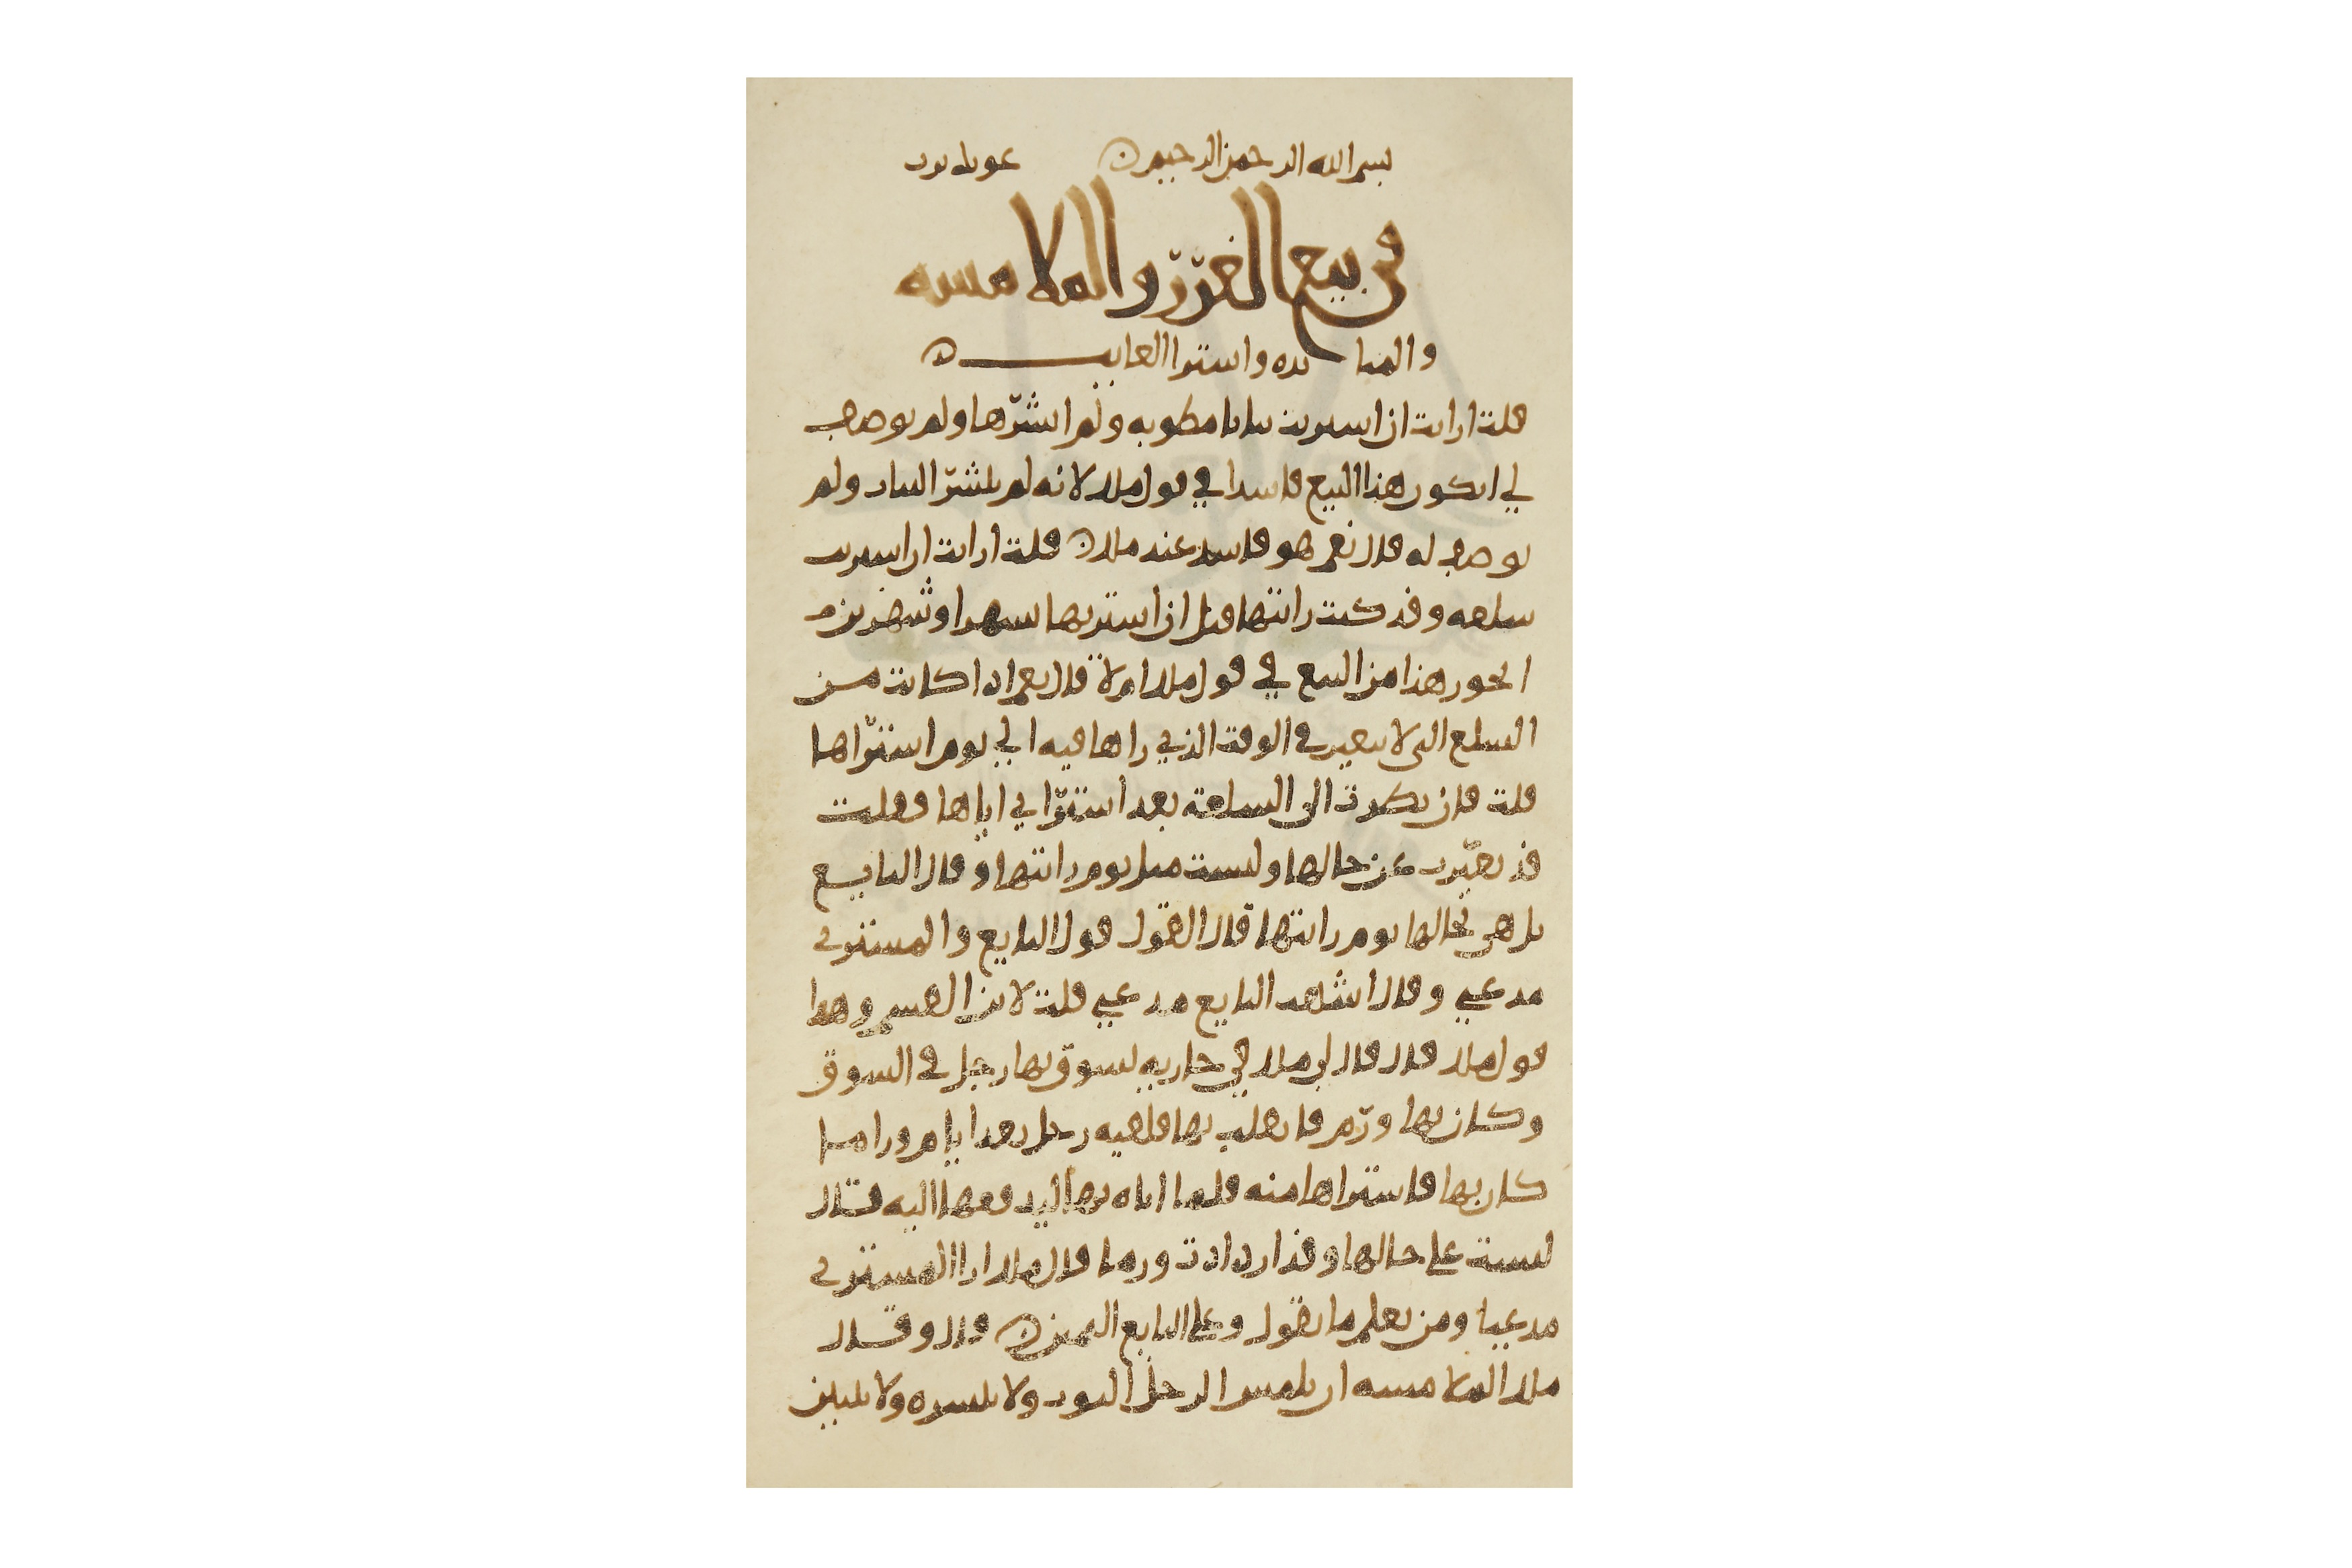 بسم الله الرحمن الرحيم عونك يرب
في بيع الغرر والملامسه
والمنابذه واشترا الغايب
قلت ارايت ان اشتريت ثيابا مطويه ولم انشرها ولم توصف
لي ايكون هذا البيع فاسدا في قول ملك لانه لم ينشر الثياب ولم
توصف له قال نعم هو فاسد عند ملك قلت ارايت ان اشتريت
سلعه وقد كنت رايتها قبل ان اشتريها بشهر او شهرين
ايجوز هذا من البيع في قول ملك ام لا قال نعم اذا كانت من
السلع التي لا تتغير في الوقت الذي راها فيه الي يوم اشتراها
قلت فان نظرت الى السلعة بعد اشترايي اياها فقلت
قد تغيرت عن حالها وليست مثل يوم رايتها وقال البايع
بل هي بحالها يوم رايتها قال القول قول البايع والمشتري
مدعي وقال اشهب البايع مدعي قلت لابن القسم وهذا
قول ملك قال قال لي ملك في جاريه تسوق بها رجل في السوق
وكان بها ورم فانقلب بها فلقيه رجل بعد ايام وراى ما
كان بها فاشتراها منه فلما اتاه بها ليدفعها اليه قال
ليست على حالها وقد ازدادت ورما قال ملك ارا المشتري
مدعيا ومن يعلم ما يقول وعلى البايع اليمين قال وقال
ملك الملامسه ان يلمس الرجل الثوب ولا ينشره ولا يتبين